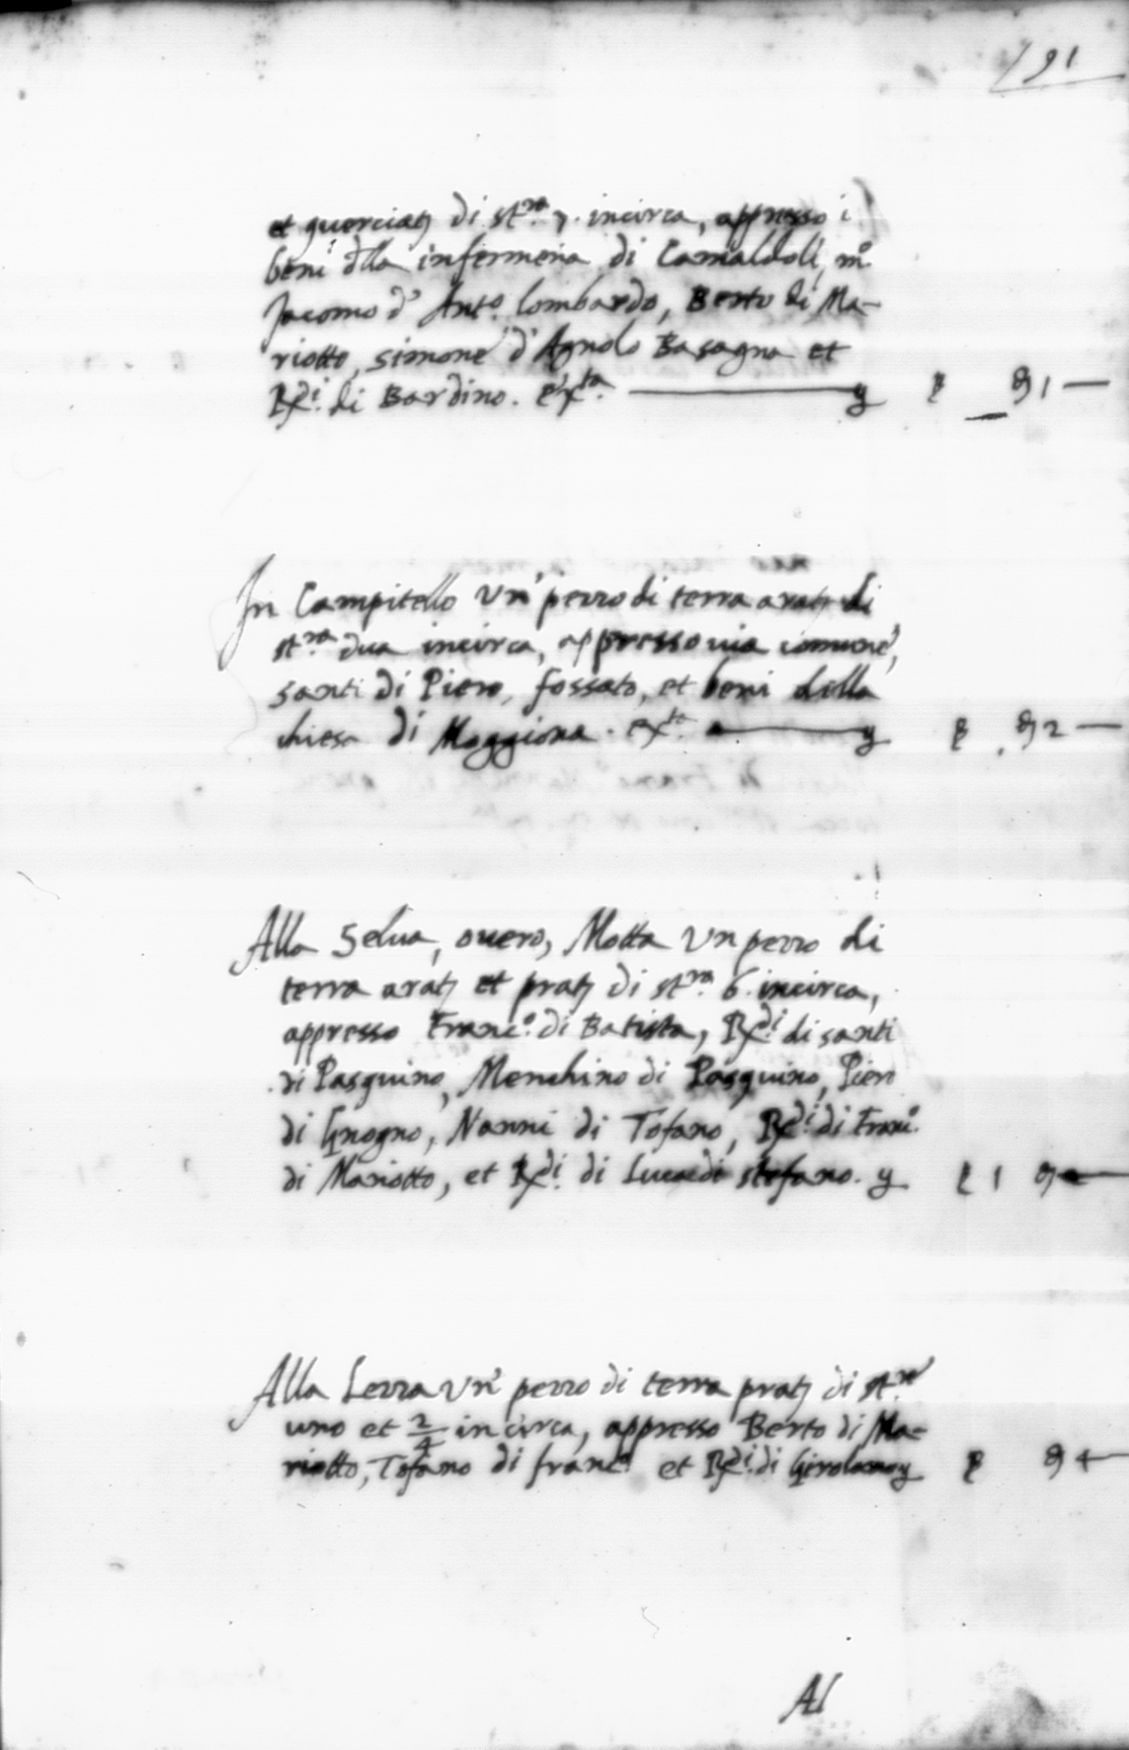 191
et querciatj di st.ra 7. incirca, appresso i
beni dlla infermeria di Camaldoli, m.o
Jacomo d' Ant.o lombardo, Berto di Ma-
riotto, simone d' Agnolo Basagna et
Rxdi. di Bardino. exta. y
In Campitello un' pezzo di terra aratj di
st.ra dua incirca, appresso via comune,
santi di Piero, fossato, et beni della
chiesa di Moggiona. exta. y 2
Alla Selva, overo, Motta un pezzo di
terra aratj et pratj di st.ra 6. incirca,
appresso Franc.o di Batista, Rxdi. di santi
di Pasquino, Menchino di Pasquino, Piero
di Gnogno, Nanni di Tofano, Rxdi. di Franc.o
di Mariotto, et Rxdi. di Luca di stefano. y 1
Alla Lezza un' pezzo di terra pratj di st.ro
uno et 2/4 incirca, appresso Berto di Ma-
riotto, Tofano di franc.o et Rxdi. di Girolamo y 4
Al